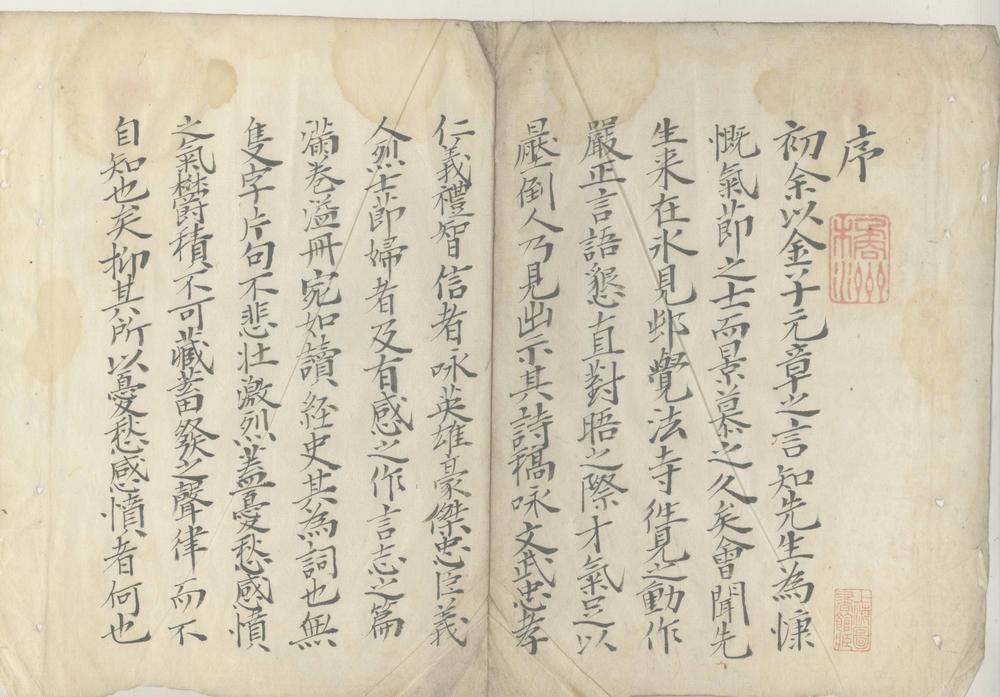 序
初余以金子元章之言知先生為慷
慨氣節之士而景慕之久矣會聞先
生来在氷見邨覺法寺徃見之動作
嚴正言語懇直對晤之際才氣足以
壓倒人乃見出示其詩稿咏文武忠孝
仁義禮智信者咏英雄豪傑忠臣義
人烈士節婦者及有感之作言志之篇
滿卷溢冊宛如讀経史其為詞也無
隻字片句不悲壮激烈蓋憂愁感憤
之氣欝積不可藏蓄發之聲律而不
自知也矣抑其所以憂愁感憤者何也